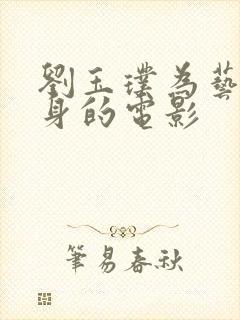 劉玉璞為藝
身的電影
筆易春秋